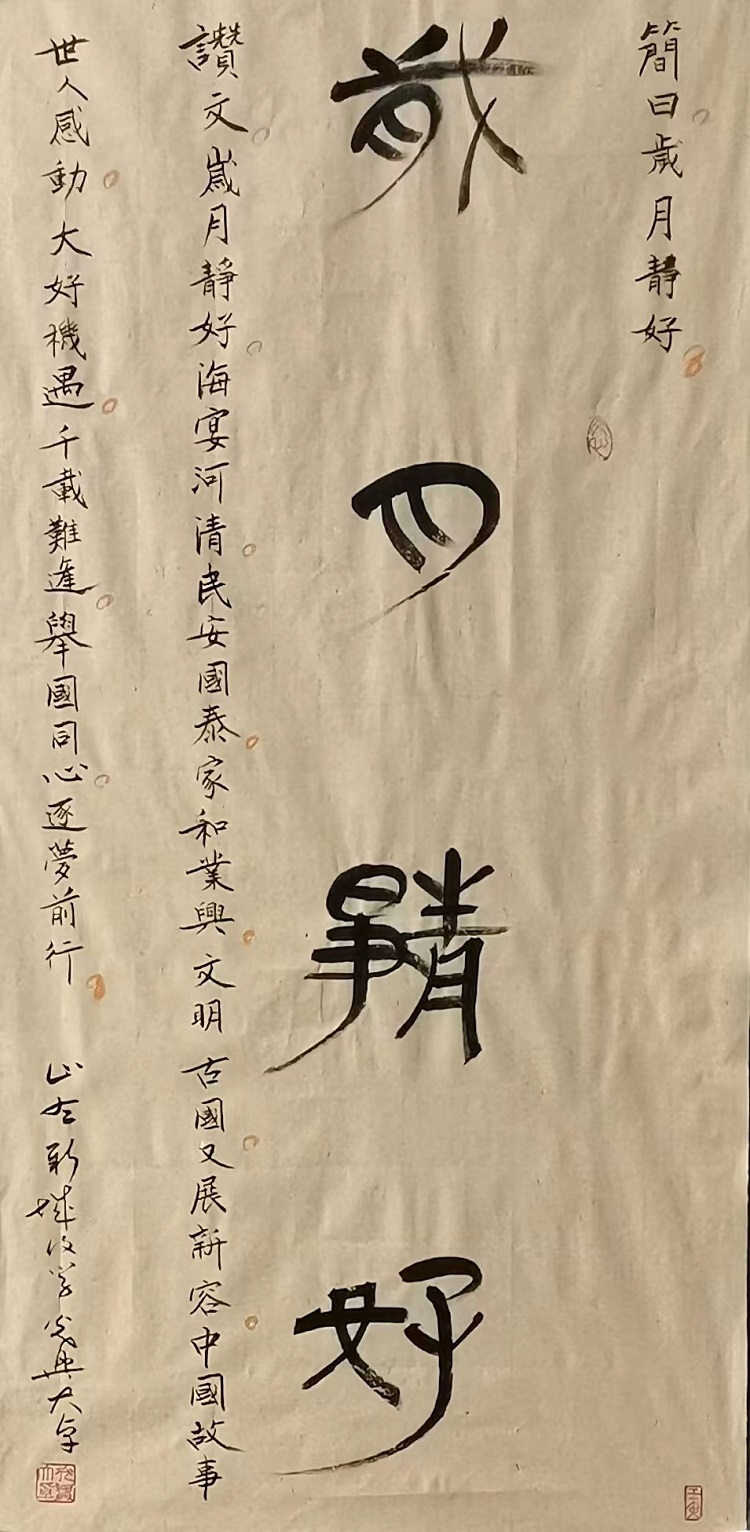 簡曰歲月靜好
歲月靜好
讚文嵗月靜好海宴河清民安國泰家和業興文明古國又展新容中國故事
世人感動大好機遇千載難逢舉國同心逐夢前行
山左新城後学